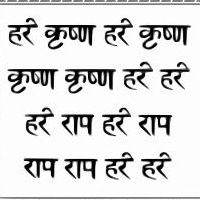 हरे कृष्ण हरे कृष्ण
कृष्ण कृष्ण हरे हरे
हरे राप हरे राप
राप राप हरे हरे